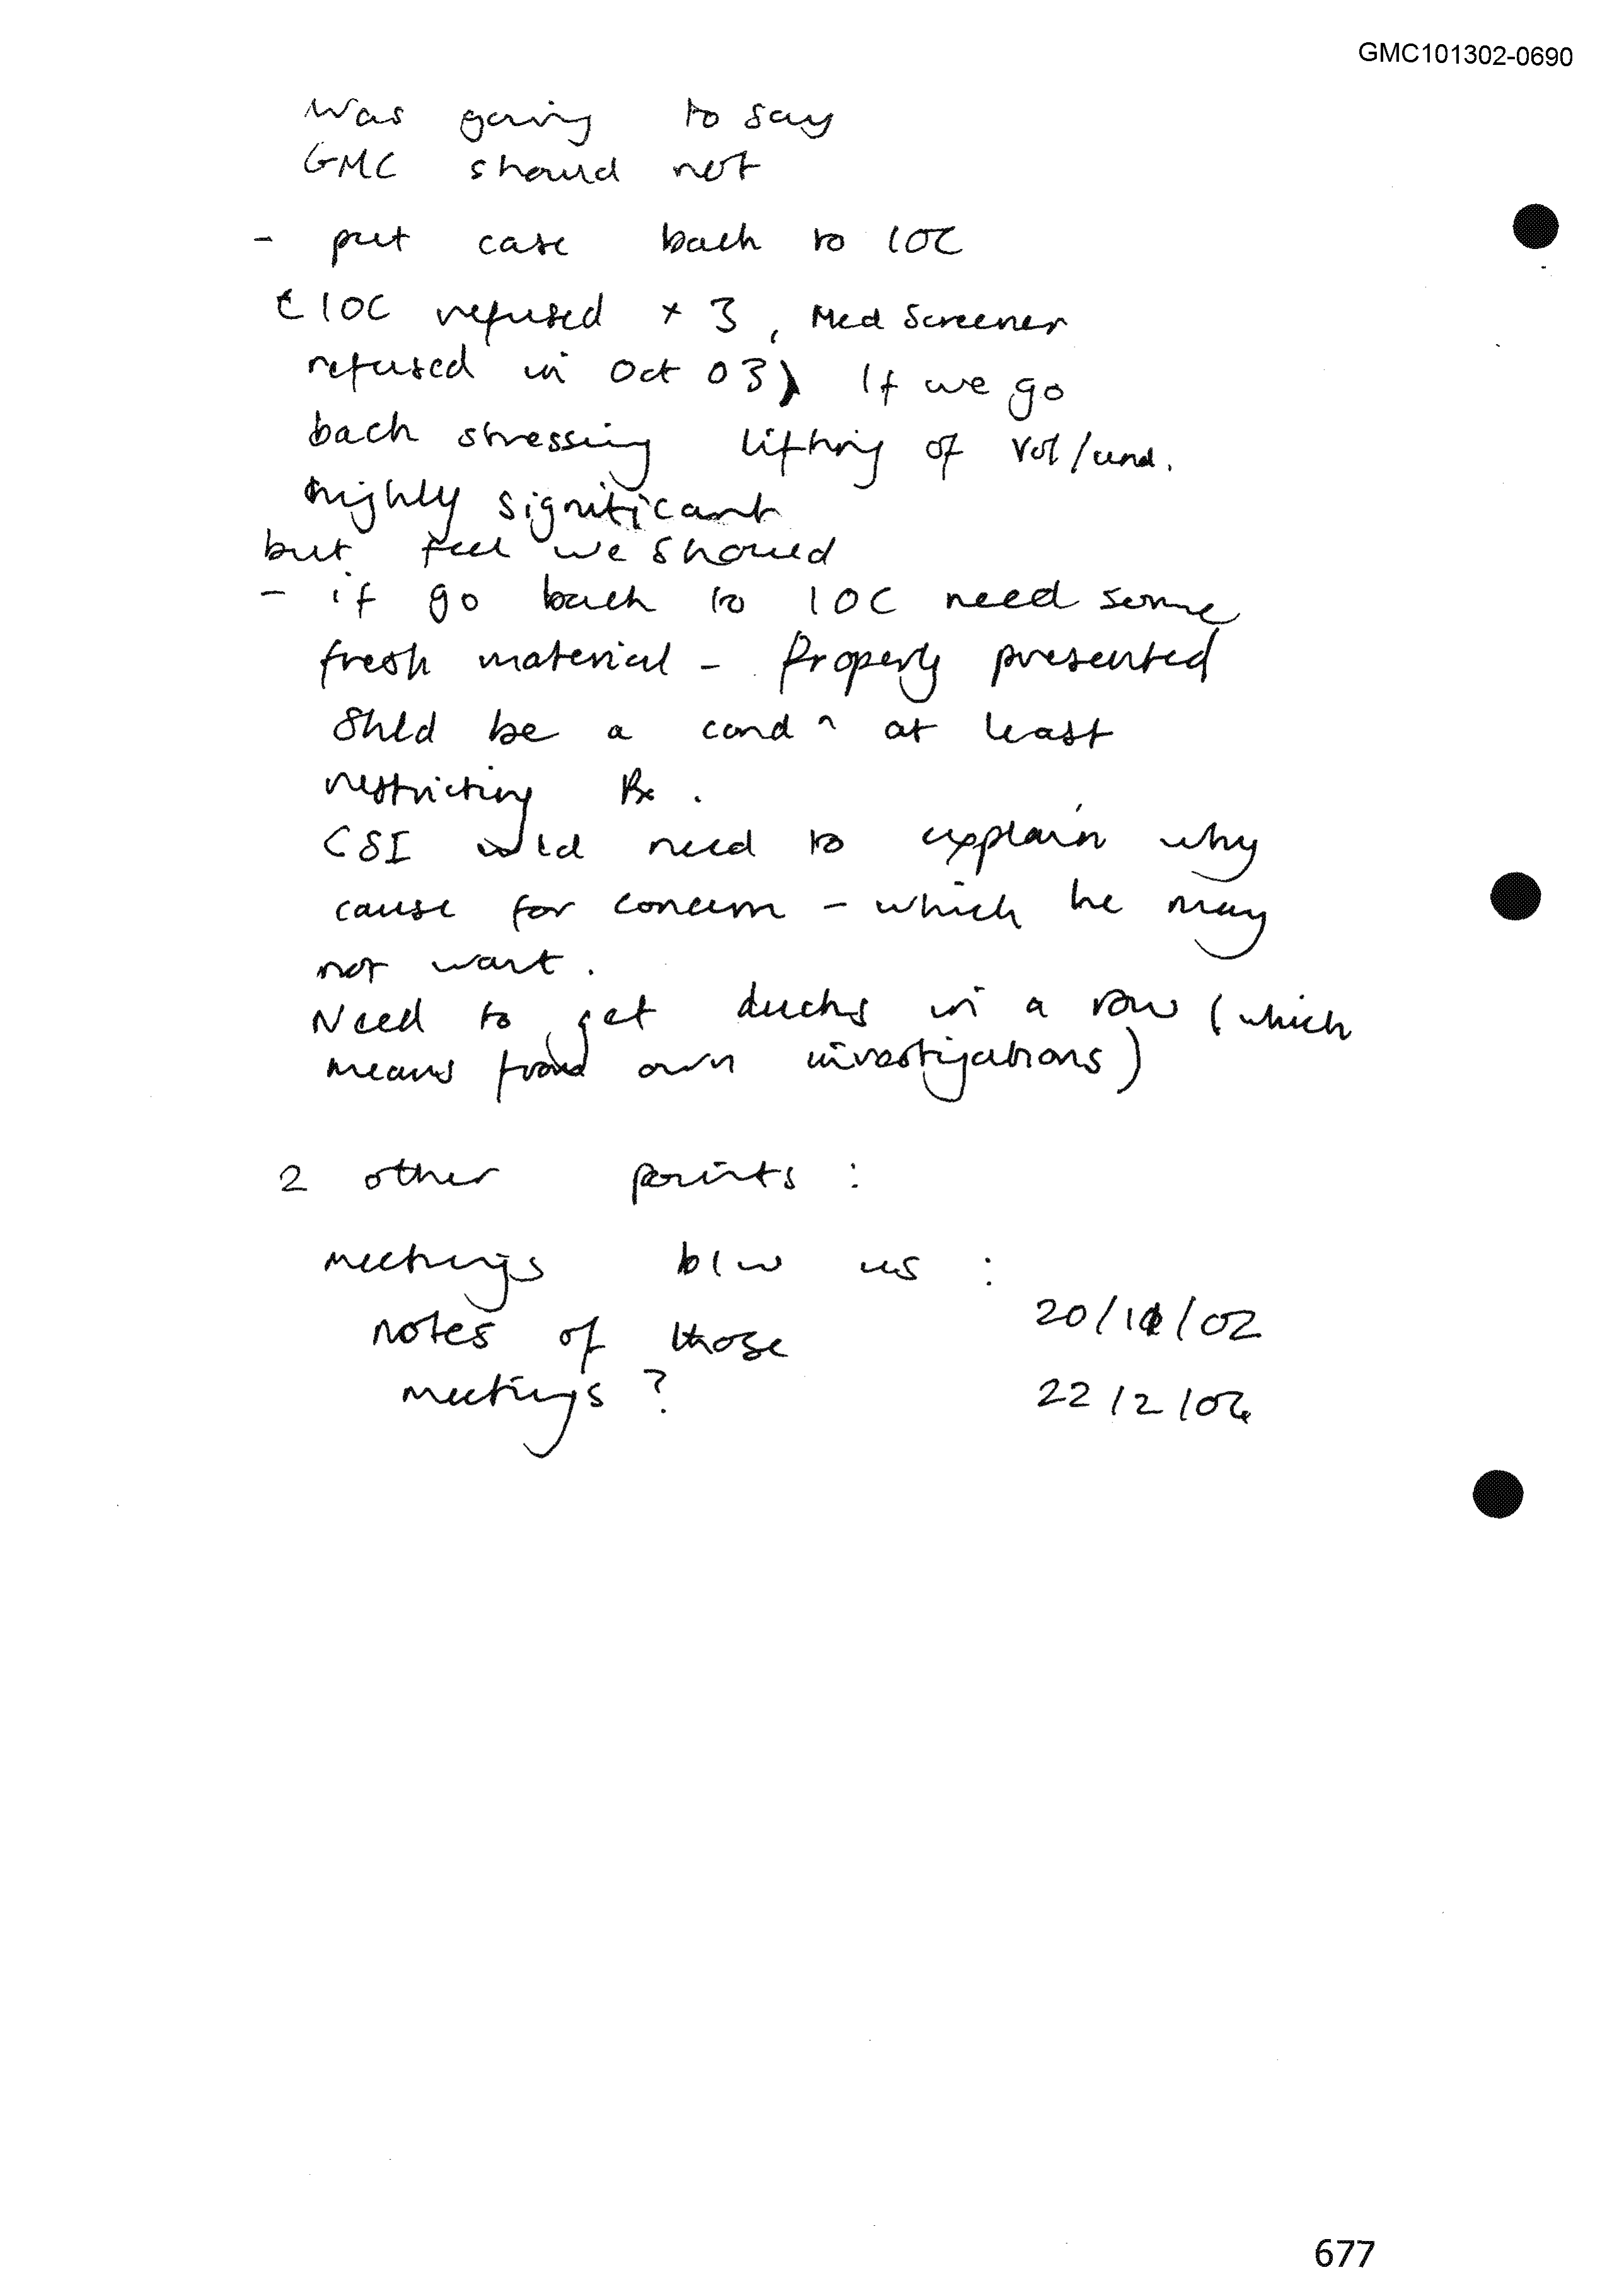 GMC101302-0690
Was going to say
GMC should not
- put case back to IOC
(IOC refused x 3, Med Screener
refused in Oct 03) If we go
back stressing lifting of Vol/und.
highly significant
but feel we should
- if go back to IOC need some
fresh material - Properly presented
Shld be a cond^n at least
restricting Rx.
CSI wld need to explain why
cause for concern - which he may
not want.
Need to get ducks in a row (which
means from own investigations)
2 other points :
meetings b/w us :
20/11/02
notes of those
meetings ?
22/2/02
677